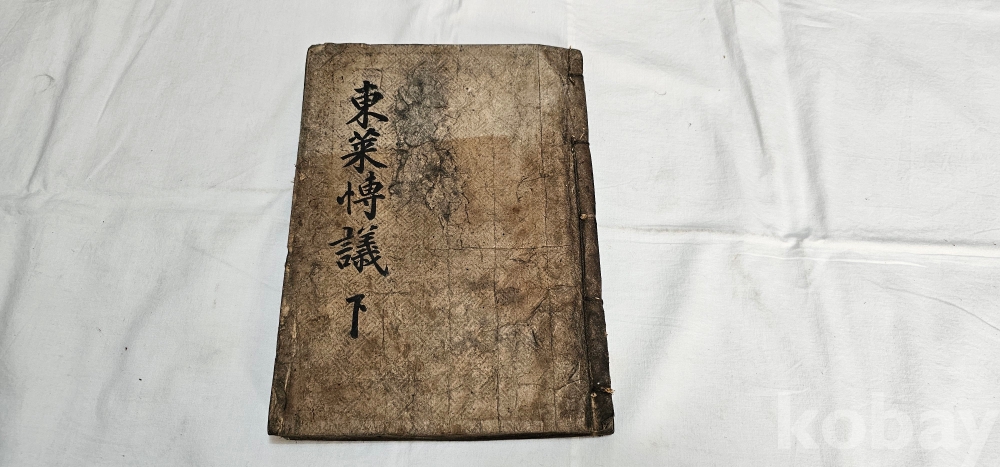 東萊愽議 下
kobay